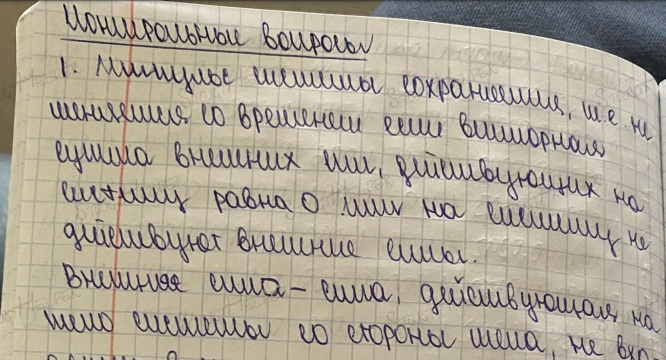 Контрольные вопросы
1. Импульс системы сохраняется, т.е. не
меняется со временем если векторная
сумма внешних сил, действующих на
систему равна 0 или на систему не
действуют внешние силы.
Внешняя сила – сила, действующая на
тело системы со стороны тела, не вхо